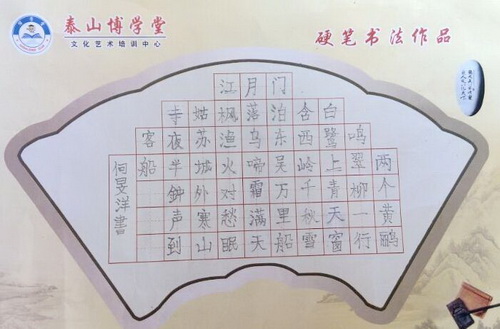 泰山博学堂
文化艺术培训中心
硬笔书法作品
两个黄鹂
鸣翠柳一行
白鹭上青天窗
含西岭千秋雪
门泊东吴万里船
月落乌啼霜满天
江枫渔火对愁眠
姑苏城外寒山
寺夜半钟声到
客船
何旻洋書